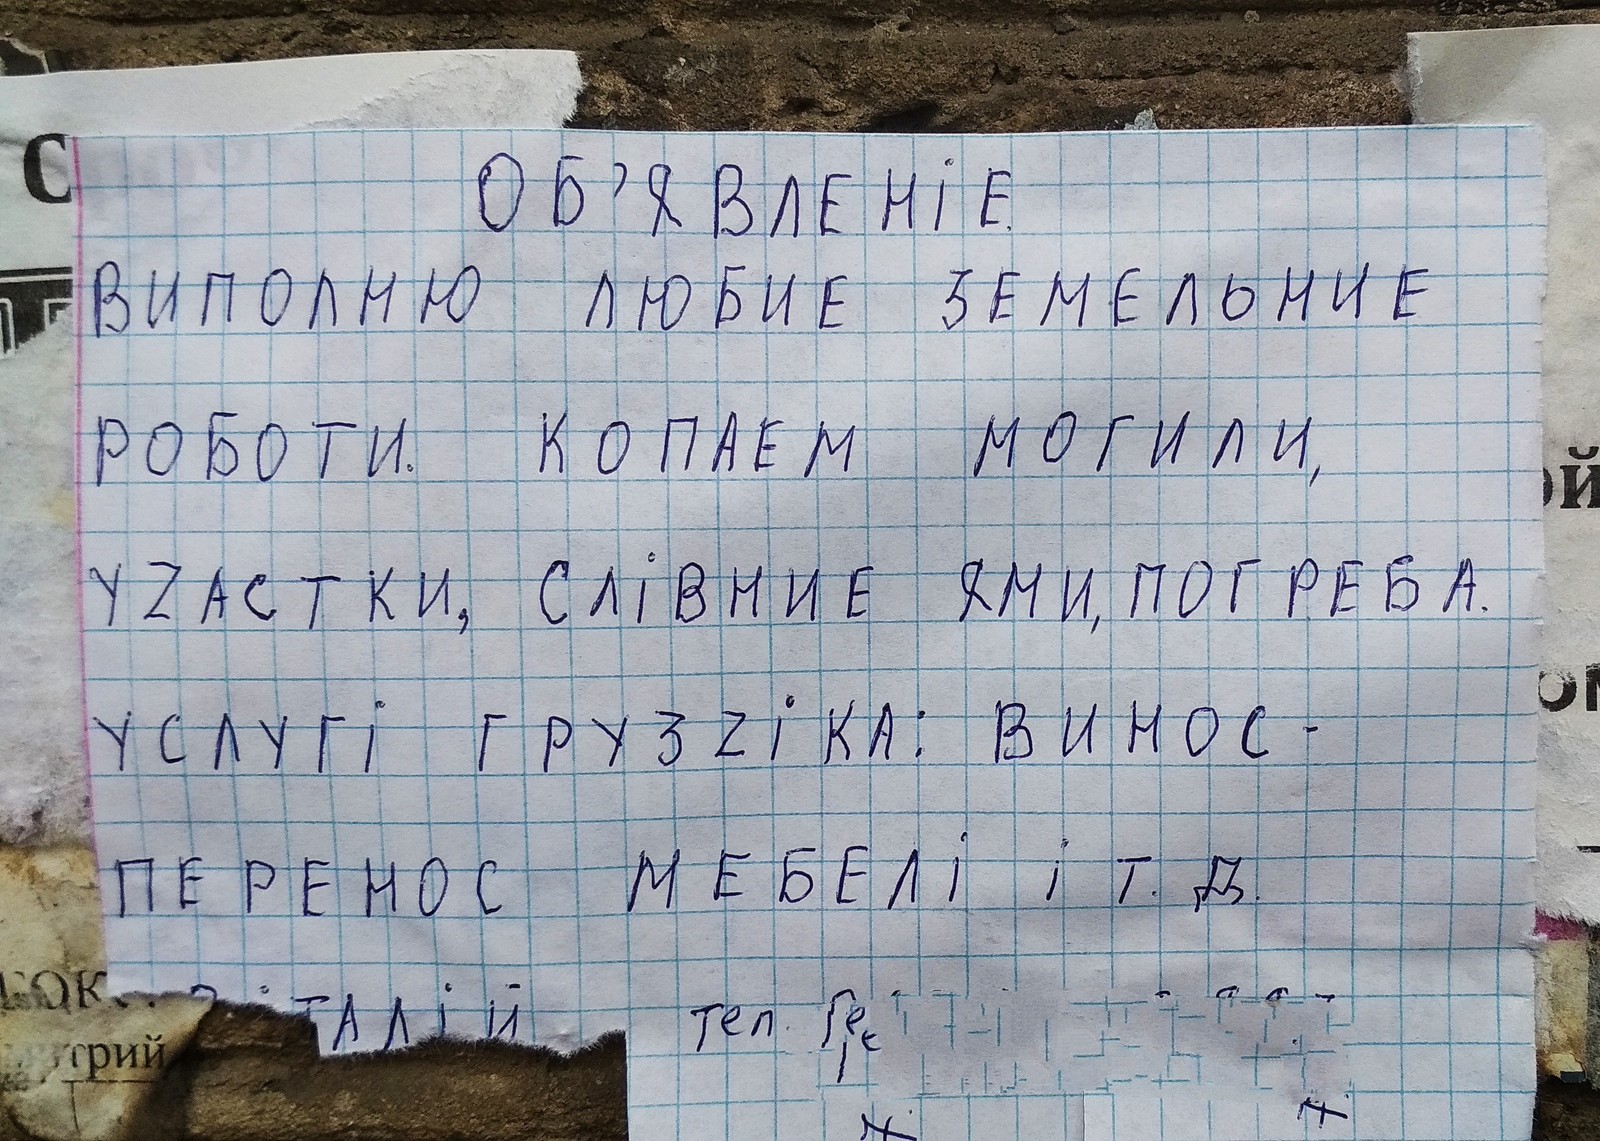 ОБ'ЯВЛЕНІЕ.
ВИПОЛНЮ ЛЮБИЕ ЗЕМЕЛЬНИЕ
РОБОТИ. КОПАЕМ МОГИЛИ,
УZАСТКИ, СЛІВНИЕ ЯМИ, ПОГРЕБА.
УСЛУГІ ГРУЗZІКА: ВИНОС-
ПЕРЕНОС МЕБЕЛІ І Т.Д.
тел.